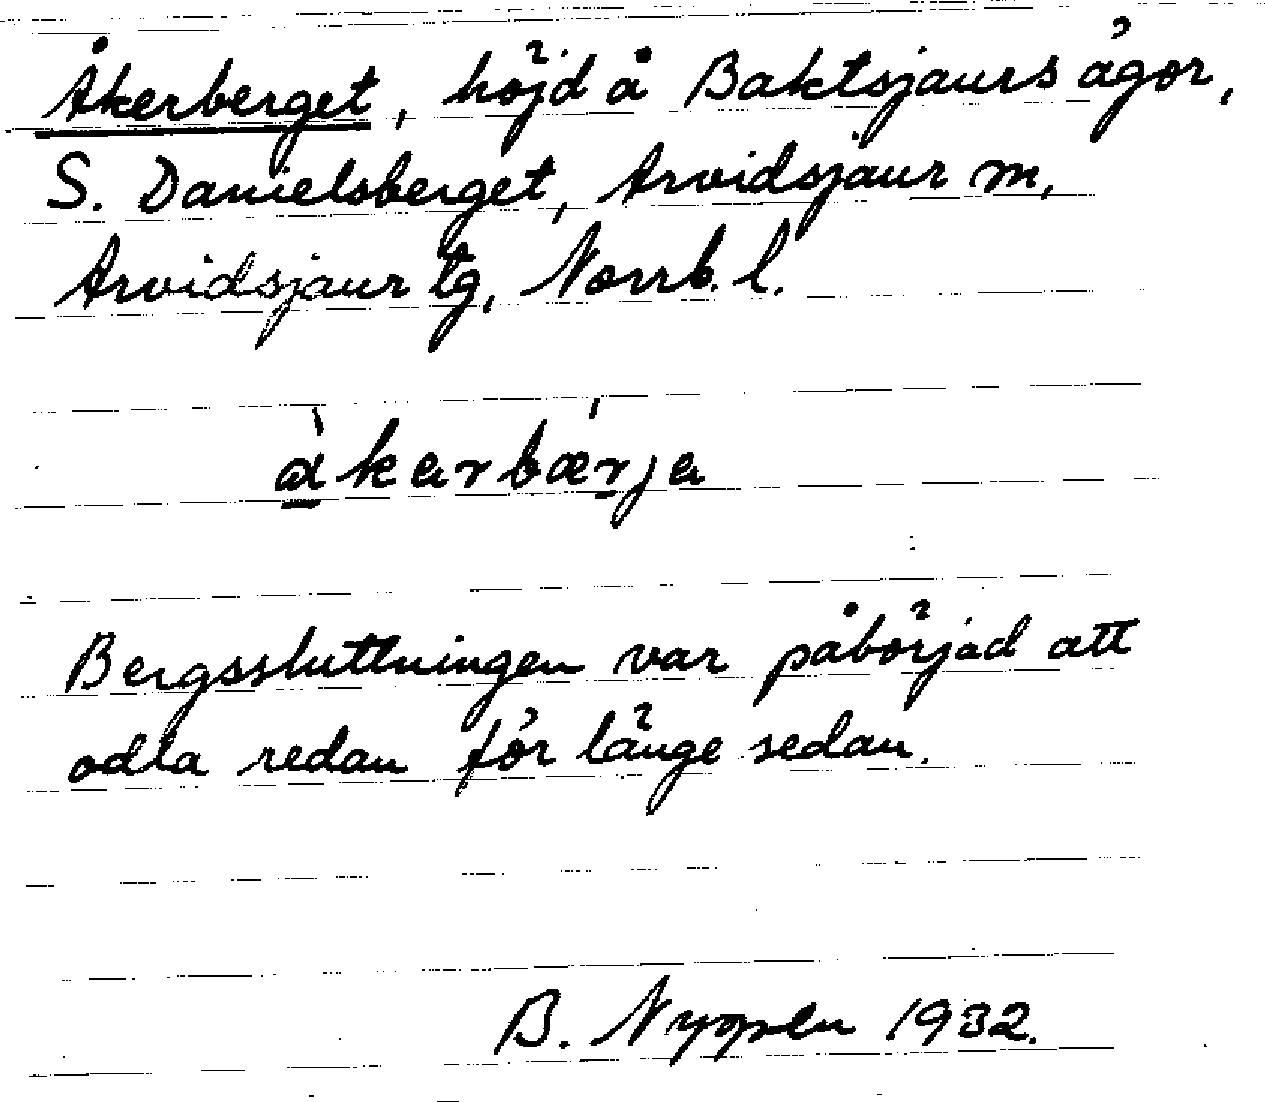 Åkerberget, höjd å Baktsjaurs ägor,
S. Danielsberget, Arvidsjaur m,
Arvidsjaur tg, Norrb. l.
å̀karbæ̀rja
Bergssluttningen var påbörjad att
odla redan för länge sedan.
B. Nyqplen 1932.